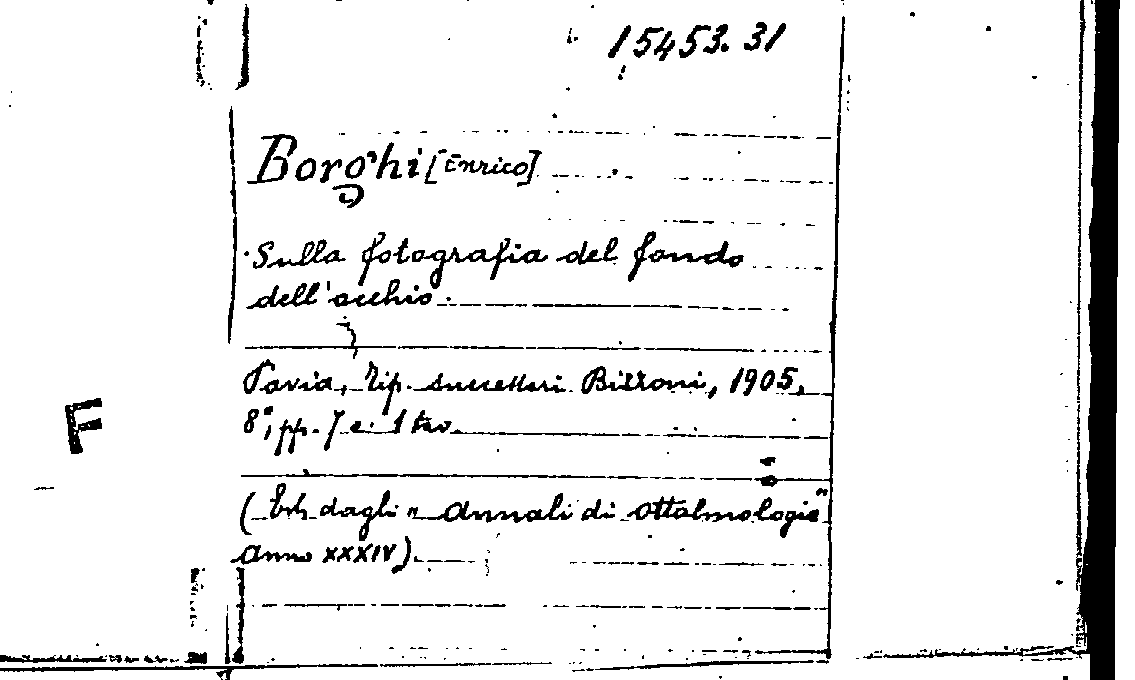 15453.31
Borghi [Enrico]
Sulla fotografia del fondo
dell'occhio.
Pavia, Tip. successori Bizzoni, 1905,
8°, pp. 7 e 1 tav.
F
(Estr. dagli "Annali di Ottalmologia"
anno XXXIV).